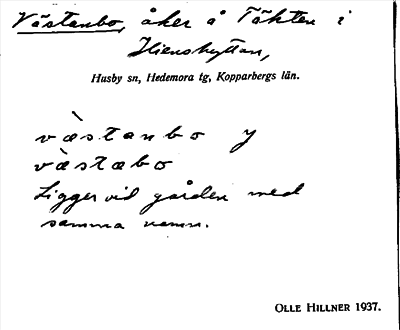 Västanbo, åker å Täkten i
Stiernshyttan,
Husby sn, Hedemora tg, Kopparbergs län.
væ̀stanbo y
væ̀stæbo
Ligger vid gården med
samma namn.
OLLE HILLNER 1937.